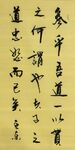 参乎吾道一以貫
之何謂也夫子之
道忠恕而已矣